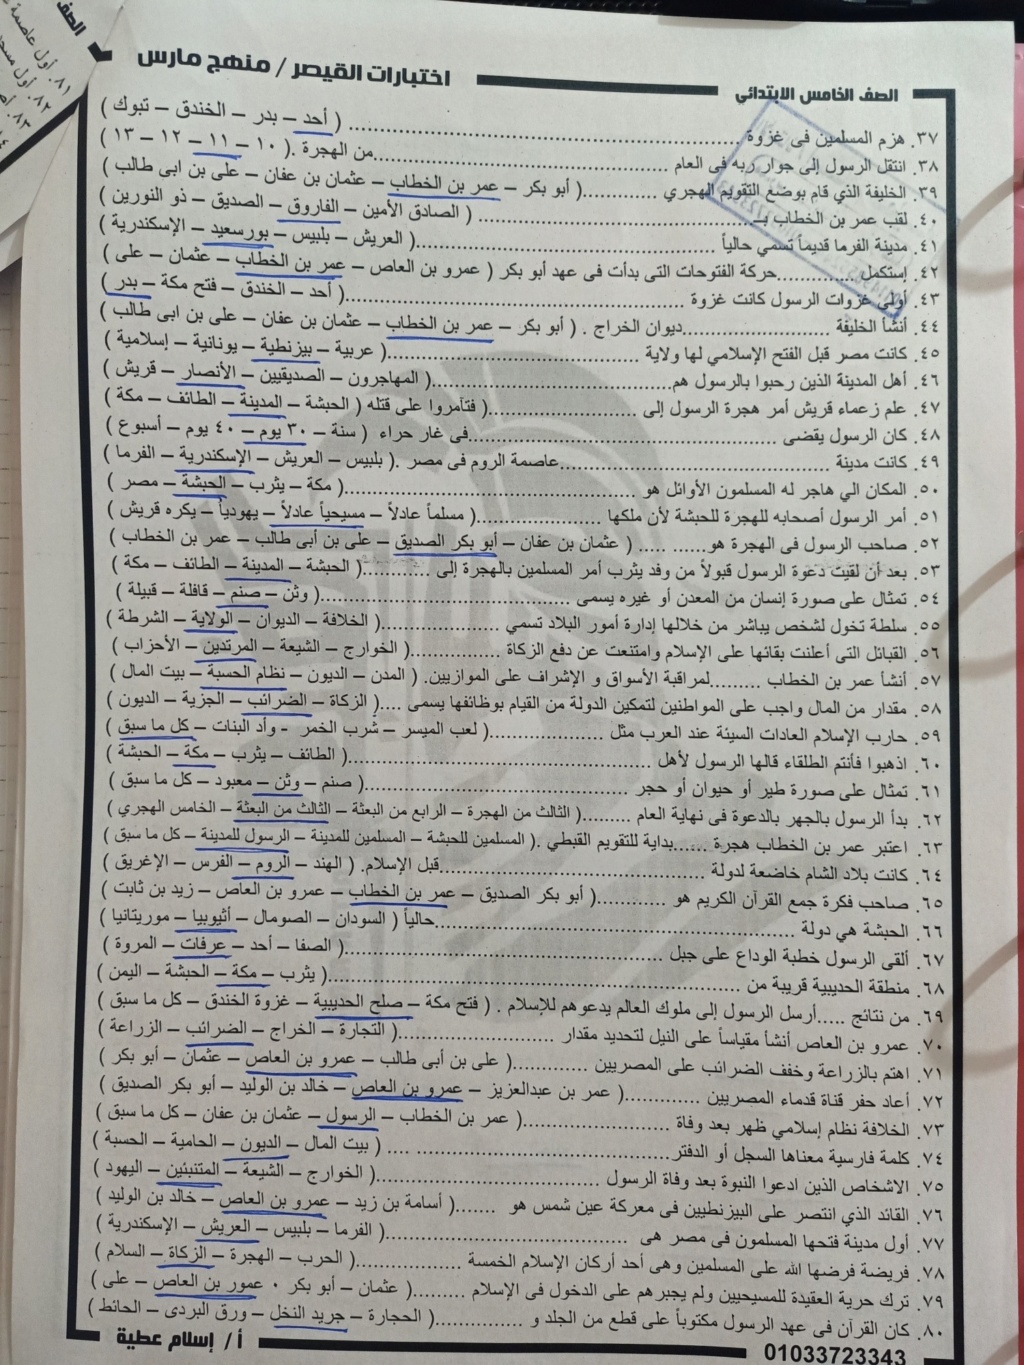 اختبارات القيصر / منهج مارس
الصف الخامس الابتدائي
٣٧. هزم المسلمين فى غزوة .......... ( أحد – بدر – الخندق – تبوك )
٣٨. انتقل الرسول إلى جوار ربه فى العام .......... من الهجرة .( ١٠ – ١١ – ١٢ – ١٣ )
٣٩. الخليفة الذي قام بوضع التقويم الهجري ..........( أبو بكر – عمر بن الخطاب – عثمان بن عفان – على بن ابى طالب )
٤٠. لقب عمر بن الخطاب بـ .......... ( الصادق الأمين – الفاروق – الصديق – ذو النورين )
٤١. مدينة الفرما قديماً تسمي حالياً ..........( العريش – بلبيس – بورسعيد – الإسكندرية )
٤٢. إستكمل ..........حركة الفتوحات التى بدأت فى عهد أبو بكر ( عمرو بن العاص – عمر بن الخطاب – عثمان – على )
٤٣. أولى غزوات الرسول كانت غزوة ..........( أحد – الخندق – فتح مكة – بدر )
٤٤. أنشأ الخليفة ..........ديوان الخراج . ( أبو بكر – عمر بن الخطاب – عثمان بن عفان – على بن ابى طالب )
٤٥. كانت مصر قبل الفتح الإسلامي لها ولاية ..........( عربية – بيزنطية – يونانية – إسلامية )
٤٦. أهل المدينة الذين رحبوا بالرسول هم..........( المهاجرون – الصديقيين – الأنصار – قريش )
٤٧. علم زعماء قريش أمر هجرة الرسول إلى ..........( فتآمروا على قتله ( الحبشة – المدينة – الطائف – مكة )
٤٨. كان الرسول يقضى ..........فى غار حراء ( سنة – ٣٠ يوم – ٤٠ يوم – أسبوع )
٤٩. كانت مدينة ..........عاصمة الروم فى مصر .( بلبيس – العريش – الإسكندرية – الفرما )
٥٠. المكان الي هاجر له المسلمون الأوائل هو ..........( مكة – يثرب – الحبشة – مصر )
٥١. أمر الرسول أصحابه للهجرة للحبشة لأن ملكها ..........( مسلماً عادلاً – مسيحياً عادلاً – يهودياً – يكره قريش )
٥٢. صاحب الرسول فى الهجرة هو.......... ( عثمان بن عفان – أبو بكر الصديق – على بن أبى طالب – عمر بن الخطاب )
٥٣. بعد أن لقيت دعوة الرسول قبولاً من وفد يثرب أمر المسلمين بالهجرة إلى ..........( الحبشة – المدينة – الطائف – مكة )
٥٤. تمثال على صورة إنسان من المعدن أو غيره يسمى ..........( وثن – صنم – قافلة – قبيلة )
٥٥. سلطة تخول لشخص يباشر من خلالها إدارة أمور البلاد تسمي ..........( الخلافة – الديوان – الولاية – الشرطة )
٥٦. القبائل التى أعلنت بقائها على الإسلام وامتنعت عن دفع الزكاة ..........( الخوارج – الشيعة – المرتدين – الأحزاب )
٥٧. أنشأ عمر بن الخطاب ..........لمراقبة الأسواق و الإشراف على الموازيين. ( المدن – الديون – نظام الحسبة – بيت المال )
٥٨. مقدار من المال واجب على المواطنين لتمكين الدولة من القيام بوظائفها يسمى ....( الزكاة – الضرائب – الجزية – الديون )
٥٩. حارب الإسلام العادات السيئة عند العرب مثل ..........( لعب الميسر – شرب الخمر - وأد البنات – كل ما سبق )
٦٠. اذهبوا فأنتم الطلقاء قالها الرسول لأهل ..........( الطائف – يثرب – مكة – الحبشة )
٦١. تمثال على صورة طير أو حيوان أو حجر ..........( صنم – وثن – معبود – كل ما سبق )
٦٢. بدأ الرسول بالجهر بالدعوة فى نهاية العام ..........( الثالث من الهجرة – الرابع من البعثة – الثالث من البعثة – الخامس الهجري )
٦٣. اعتبر عمر بن الخطاب هجرة ......بداية للتقويم القبطي .( المسلمين للحبشة – المسلمين للمدينة – الرسول للمدينة – كل ما سبق )
٦٤. كانت بلاد الشام خاضعة لدولة ..........قبل الإسلام. ( الهند – الروم – الفرس – الإغريق )
٦٥. صاحب فكرة جمع القرآن الكريم هو ..........( أبو بكر الصديق – عمر بن الخطاب – عمرو بن العاص – زيد بن ثابت )
٦٦. الحبشة هي دولة ..........حالياً ( السودان – الصومال – أثيوبيا – موريتانيا )
٦٧. ألقى الرسول خطبة الوداع على جبل ..........( الصفا – أحد – عرفات – المروة )
٦٨. منطقة الحديبية قريبة من ..........( يثرب – مكة – الحبشة – اليمن )
٦٩. من نتائج .....أرسل الرسول إلى ملوك العالم يدعوهم للإسلام . ( فتح مكة – صلح الحديبية – غزوة الخندق – كل ما سبق )
٧٠. عمرو بن العاص أنشأ مقياساً على النيل لتحديد مقدار ..........( التجارة – الخراج – الضرائب – الزراعة )
٧١. اهتم بالزراعة وخفف الضرائب على المصريين ..........( على بن أبى طالب – عمرو بن العاص – عثمان – أبو بكر )
٧٢. أعاد حفر قناة قدماء المصريين ..........( عمر بن عبدالعزيز – عمرو بن العاص – خالد بن الوليد – أبو بكر الصديق )
٧٣. الخلافة نظام إسلامي ظهر بعد وفاة ..........( عمر بن الخطاب – الرسول – عثمان بن عفان – كل ما سبق )
٧٤. كلمة فارسية معناها السجل أو الدفتر.......... ( بيت المال – الديون – الحامية – الحسبة )
٧٥. الاشخاص الذين ادعوا النبوة بعد وفاة الرسول ..........( الخوارج – الشيعة – المتنبئين – اليهود )
٧٦. القائد الذي انتصر على البيزنطيين في معركة عين شمس هو .......( أسامة بن زيد – عمرو بن العاص – خالد بن الوليد )
٧٧. أول مدينة فتحها المسلمون فى مصر هى ..........( الفرما – بلبيس – العريش – الإسكندرية )
٧٨. فريضة فرضها الله على المسلمين وهى أحد أركان الإسلام الخمسة ..........( الحرب – الهجرة – الزكاة – السلام )
٧٩. ترك حرية العقيدة للمسيحيين ولم يجبرهم على الدخول فى الإسلام ..........( عثمان – أبو بكر · عمور بن العاص – على )
٨٠. كان القرآن فى عهد الرسول مكتوباً على قطع من الجلد و ..........( الحجارة – جريد النخل – ورق البردى – الحائط )
01033723343
أ/ إسلام عطية